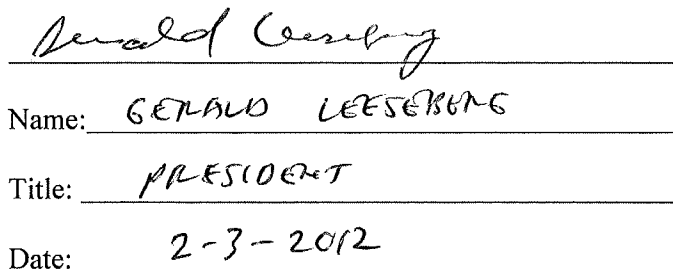 Gerald Leeseberg
Name: GERALD LEESEBERG
Title: PRESIDENT
Date: 2-3-2012